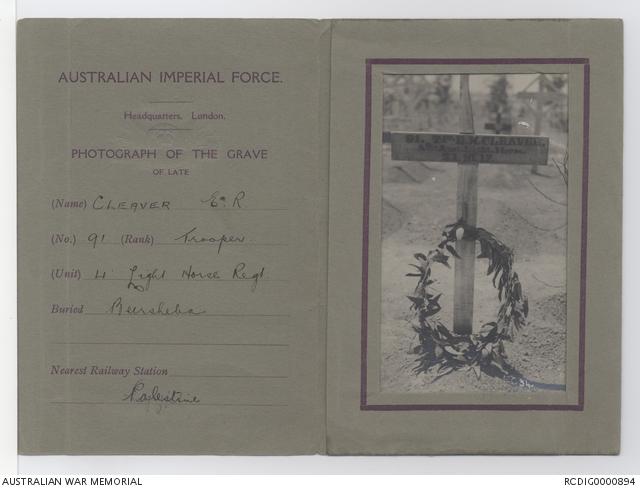 AUSTRALIAN IMPERIAL FORCE.
Headquarters, London.
PHOTOGRAPH OF THE GRAVE
OF LATE
(Name) CLEAVER E. R
(No.) 91 (Rank) Trooper
(Unit) 4 Light Horse Regt
Buried Beersheba
Nearest Railway Station
Palestine
91 TPR CLEAVER
AUSTRALIAN WAR MEMORIAL
RCDIG0000894